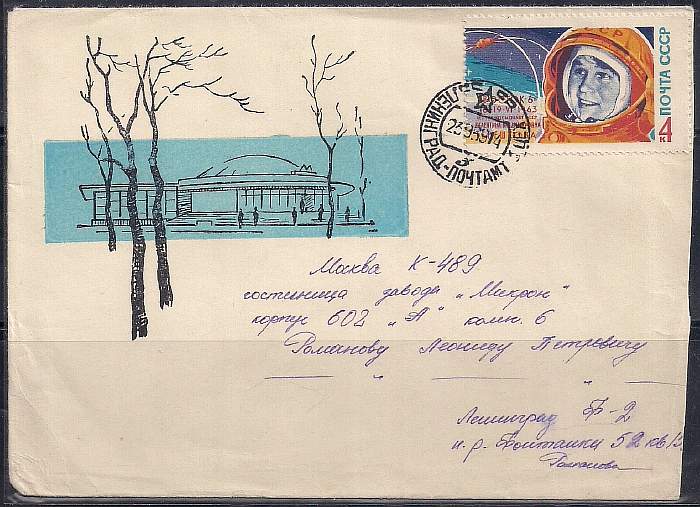 СССР
ПОЧТА СССР
4к
ЛЕНИНГРАД-ПОЧТАМТ
Москва К-489
гостиница завода „Микрон"
корпус 602 „А" комн. 6
Романову Леониду Петровичу
— „ — „ —
Ленинград Ф-2
н. р. Фонтанки 52 кв
Романова